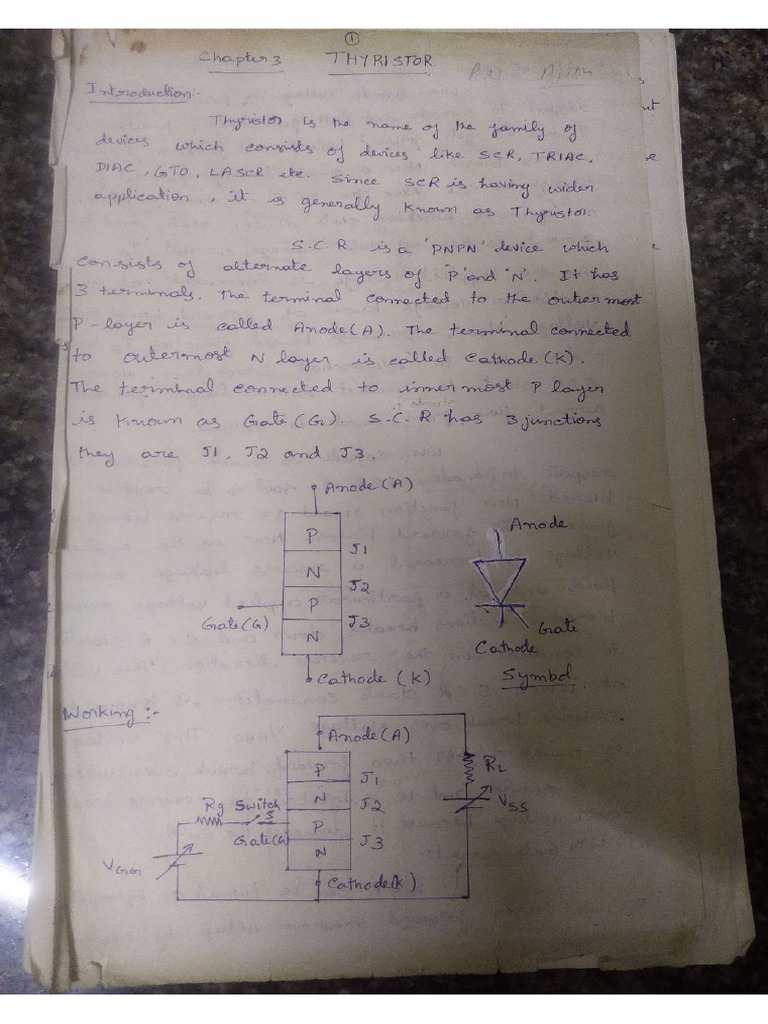 1
Chapter 3 THYRISTOR
Introduction:-
Thyristor is the name of the family of
devices which consists of devices like SCR, TRIAC,
DIAC, GTO, LASCR etc. Since SCR is having wider
application, it is generally known as Thyristor.
S.C.R is a 'PNPN' device which
consists of alternate layers of 'P' and 'N'. It has
3 terminals. The terminal connected to the outer most
P-layer is called Anode(A). The terminal connected
to outermost N layer is called Cathode (K).
The terminal connected to inner most P layer
is known as Gate (G). S.C.R has 3 junctions
they are J1, J2 and J3.
Anode (A)
P
J1
N
J2
P
J3
N
Gate(G)
Cathode (K)
Anode
Gate
Cathode
Symbol
Working :-
Anode (A)
P
J1
N
J2
P
J3
N
Rg Switch
S
Gate(G)
VGG
Cathode(K)
RL
VSS